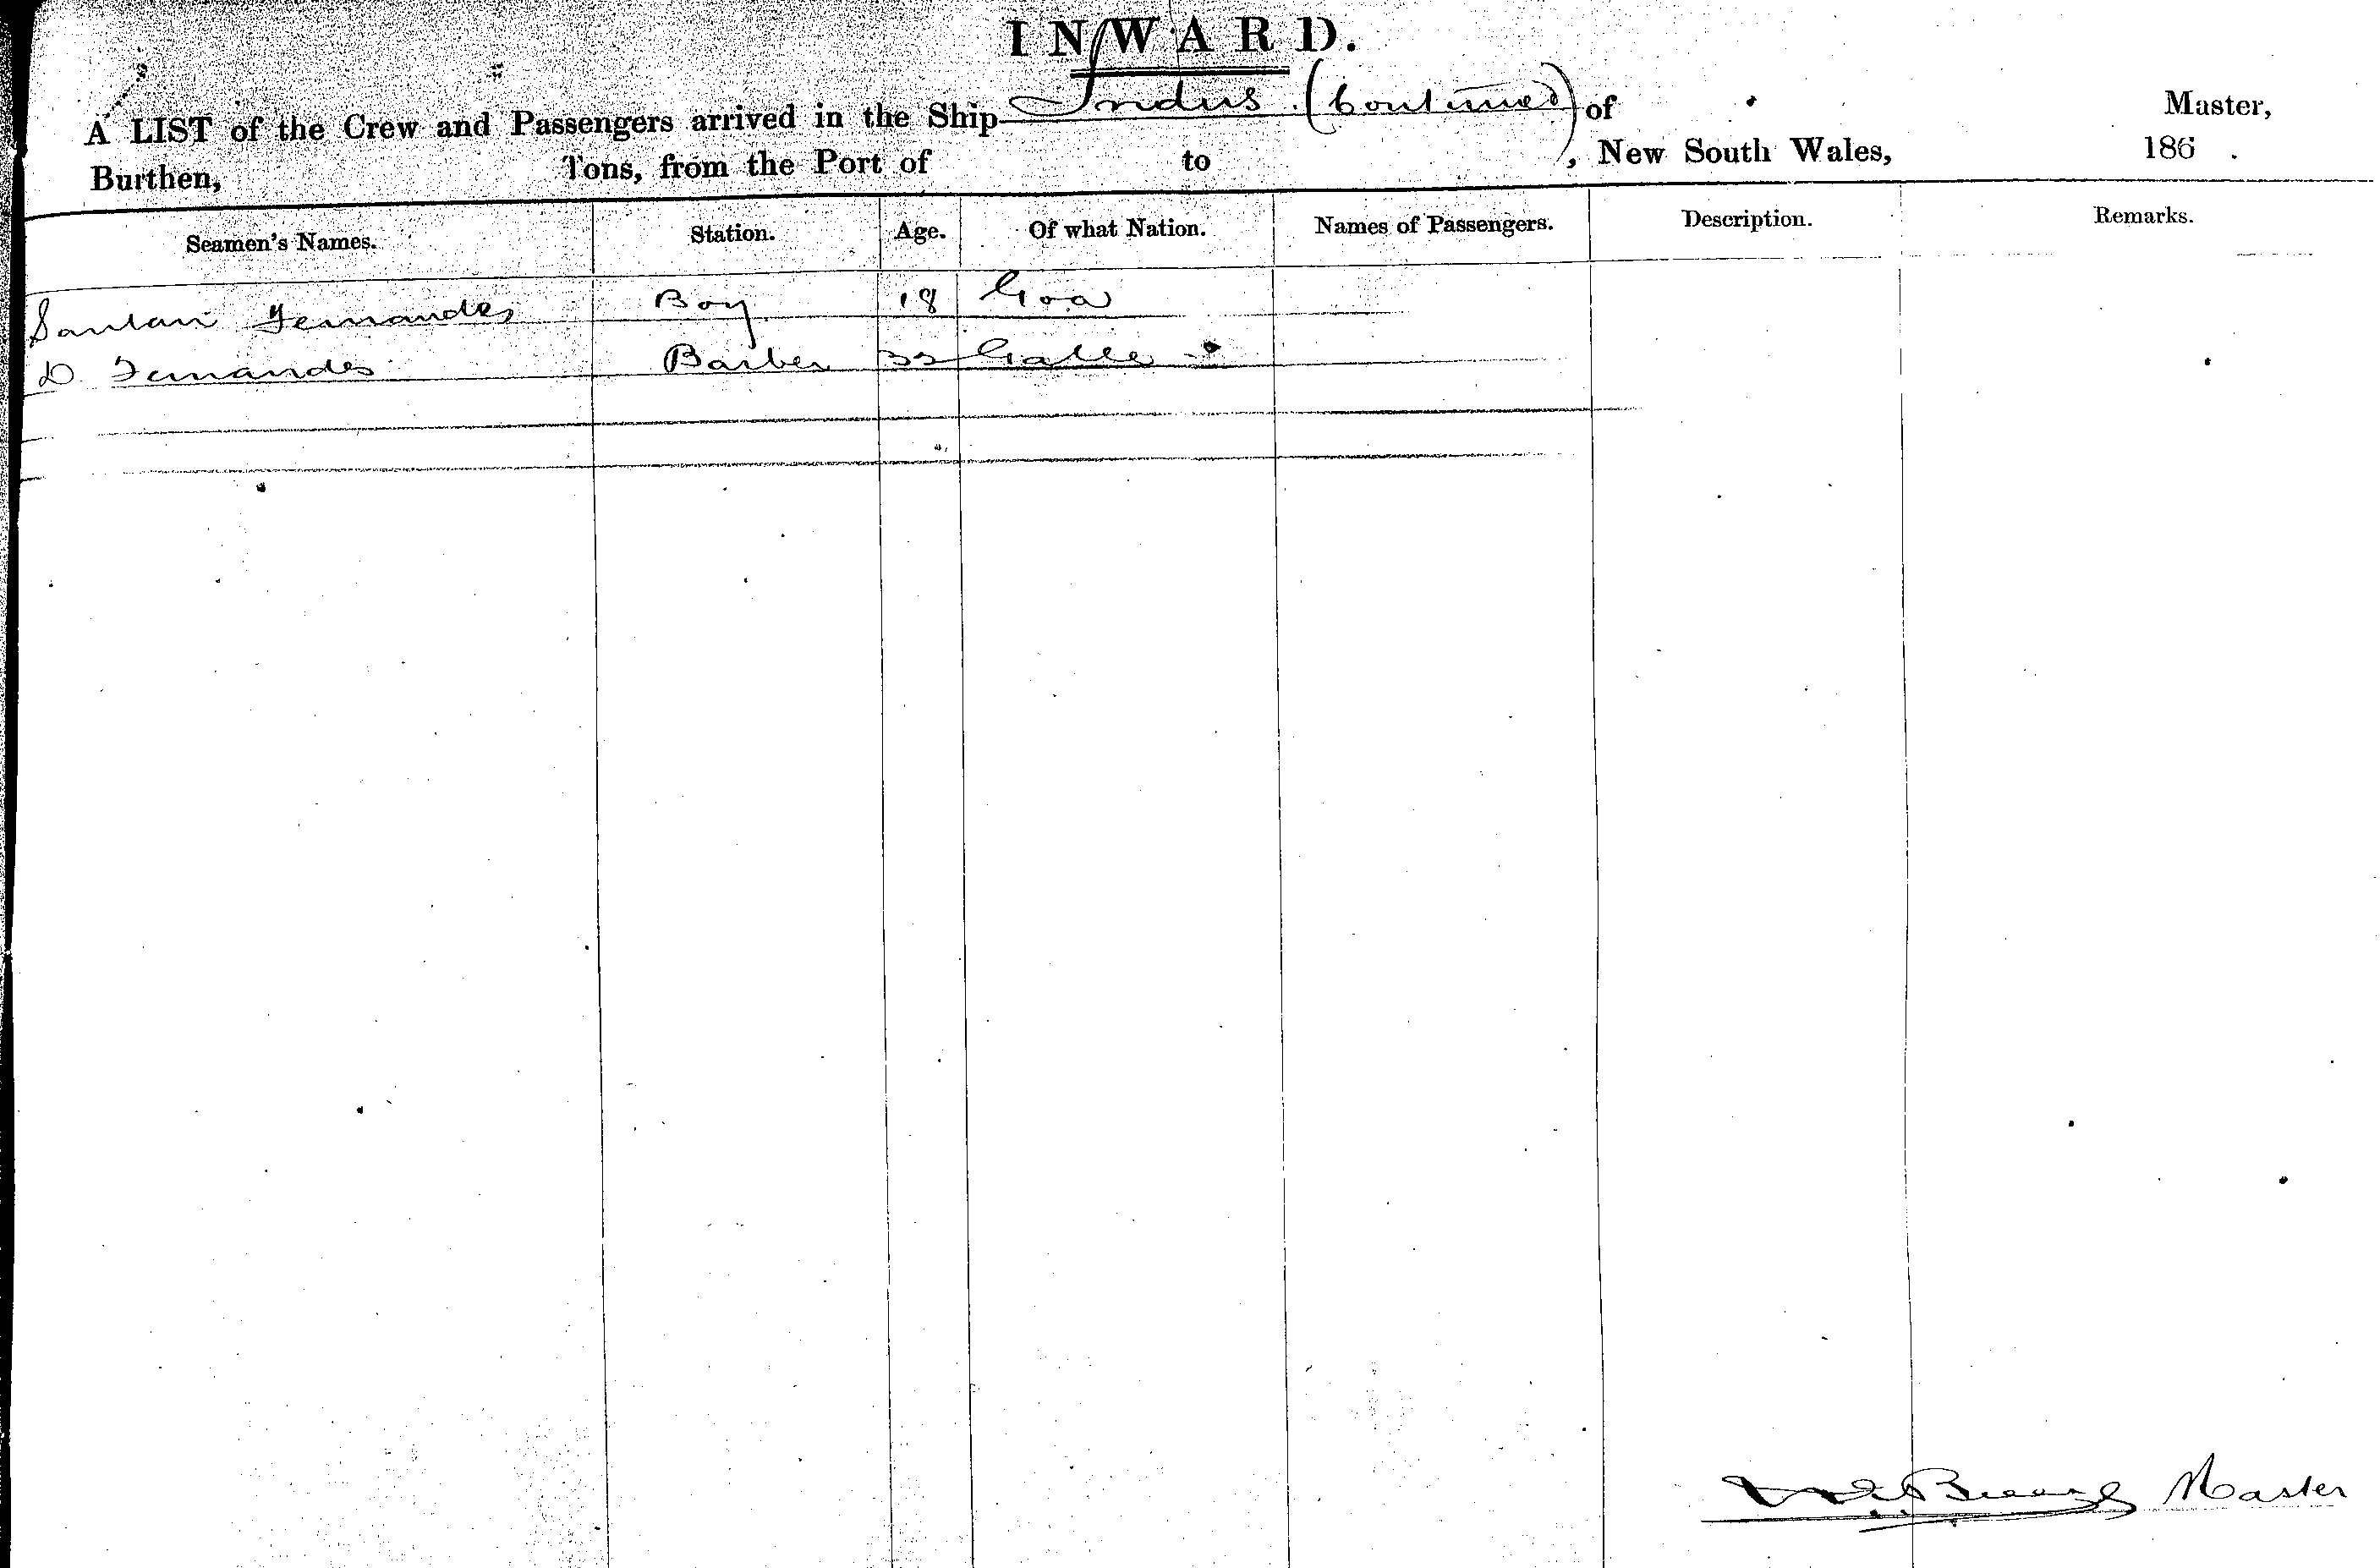 INWARD.
A LIST of the Crew and Passengers arrived in the Ship Indus (Continued) of Master,
Burthen, Tons, from the Port of to , New South Wales, 186 .
Seamen's Names. Station. Age. Of what Nation. Names of Passengers. Description. Remarks.
Santan Fernandes Boy 18 Goa
D Fernandes Barber 32 Galle
Master